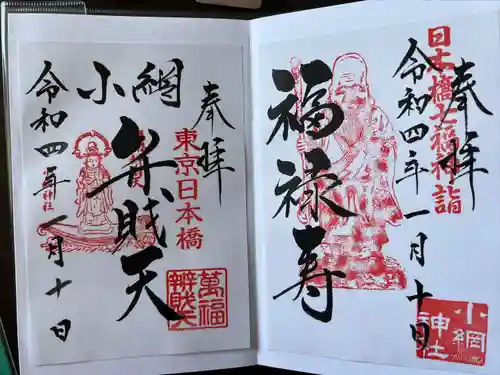 日本橋七福神詣
奉拝
令和四年一月十日
福禄寿
小網
神社
奉拝
東京日本橋
小網
弁財天
萬福
辨財天
令和四年一月十日